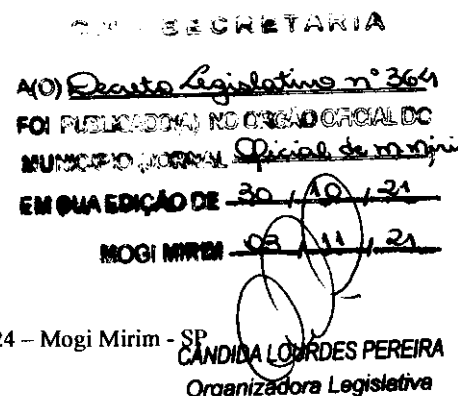 SECRETARIA
A(O) Decreto Legislativo nº 364
FOI PUBLICADO(A) NO ORGÃO OFICIAL DO
MUNICIPIO (JORNAL Oficial de m.miri
EM SUA EDIÇÃO DE 30 / 10 / 21
MOGI MIRIM 03 / 11 / 21
24 – Mogi Mirim - SP
CANDIDA LOURDES PEREIRA
Organizadora Legislativa